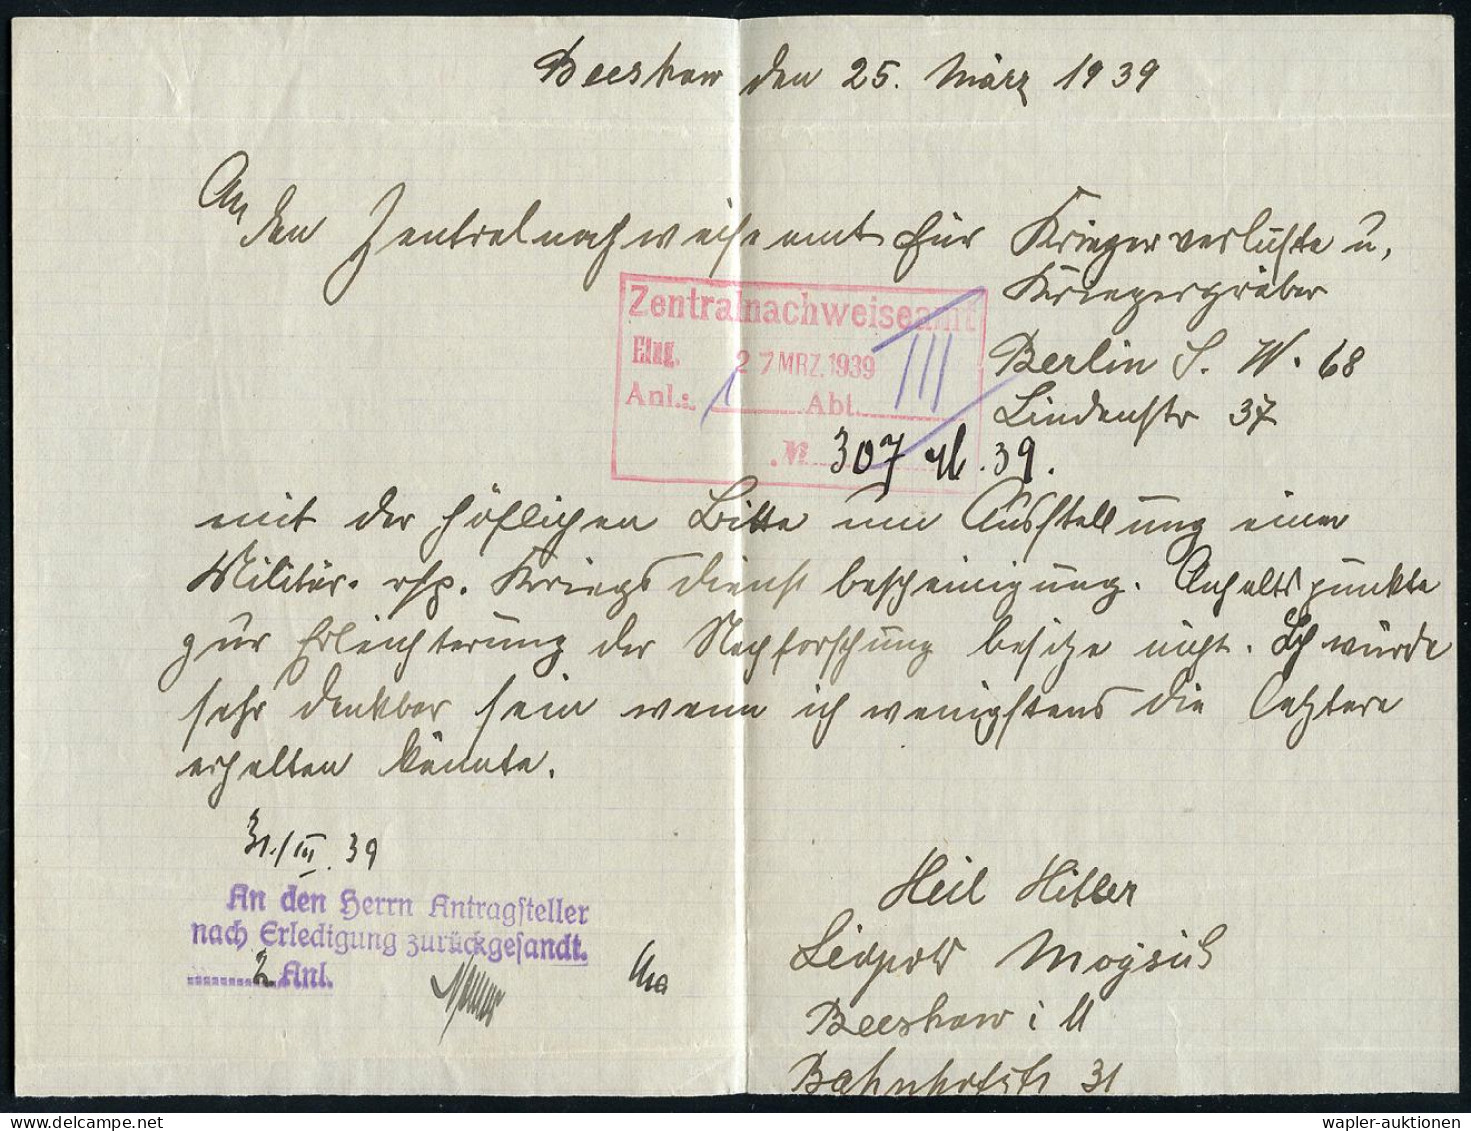 Beeskow den 25. März 1939
An
den Zentralnachweiseamt für Kriegerverluste u.
Kriegergräber
Zentralnachweiseamt
Eing. 27 MRZ. 1939 III
Anl.: 1 Abt.
№ 307 39.
Berlin S. W. 68
Lindenstr 37
mit der höflichen Bitte um Ausstellung einer
Militär- rsp. Kriegsdienst bescheinigung. Anhaltspunkte
zur Erleichterung der Nachforschung besitze nicht. Ich würde
sehr dankbar sein wenn ich wenigstens die letztere
erhalten könnte.
31./III. 39
An den Herrn Antragsteller
nach Erledigung zurückgesandt.
2 Anl.
Heil Hitler
Leopold
Beeskow i M
Bahnhofstr 31
wapler-auktionen